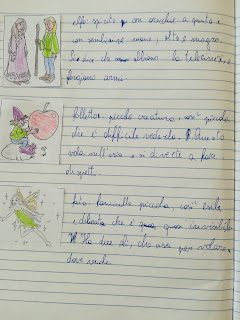 elfo: spirito con orecchie a punta e
con sembianze umane, alto e magro.
Si dice che abbiano la
forgiano armi.
folletto: piccola creatura, così piccola
che è difficile vederlo. Questo
vola nell'aria e si diverte a fare
dispetti.
fata: fanciulla piccola, così esile
e delicata che è quasi invisibile.
Ha due ali, che usa per volare
dove vuole.